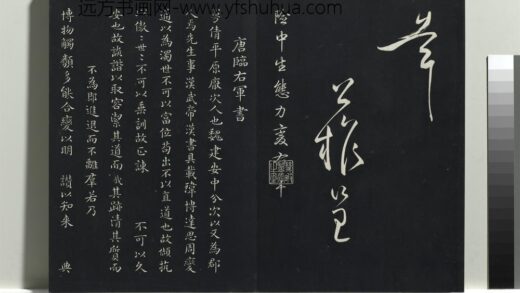 远方书画网-www.yfshuhua.com
險中生態力
唐臨右軍書
倩平原厭次人也魏建安中分次以又為郡
人焉先生事漢武帝漢書具載瑋博達思周變
通以為濁世不可以富位苟出不以直道也故頡抗
傲世世不可以垂訓故正諫 不可以久
安也故詼諧以取容潔其道而穢其跡清其質而
不為耶進退而不離羣若乃
博物觸類多能合變以明 讃以知来 典